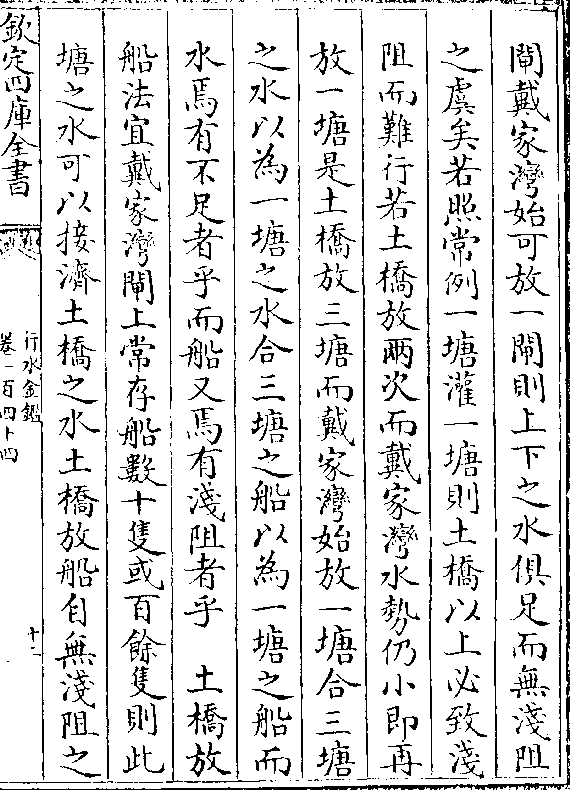 閘戴家灣始可放一閘則上下之水俱足而無淺阻
之虞矣若照常例一塘灌一塘則土橋以上必致淺
阻而難行若土橋放兩次而戴家灣水勢仍小即再
放一塘是土橋放三塘而戴家灣始放一塘合三塘
之水以為一塘之水合三塘之船以為一塘之船而
水焉有不足者乎而船又焉有淺阻者乎　土橋放
船法宜戴家灣閘上常存船數十隻或百餘隻則此
塘之水可以接濟土橋之水土橋放船自無淺阻之
欽定四庫全書
行水金鑑
卷一百四十四
十二